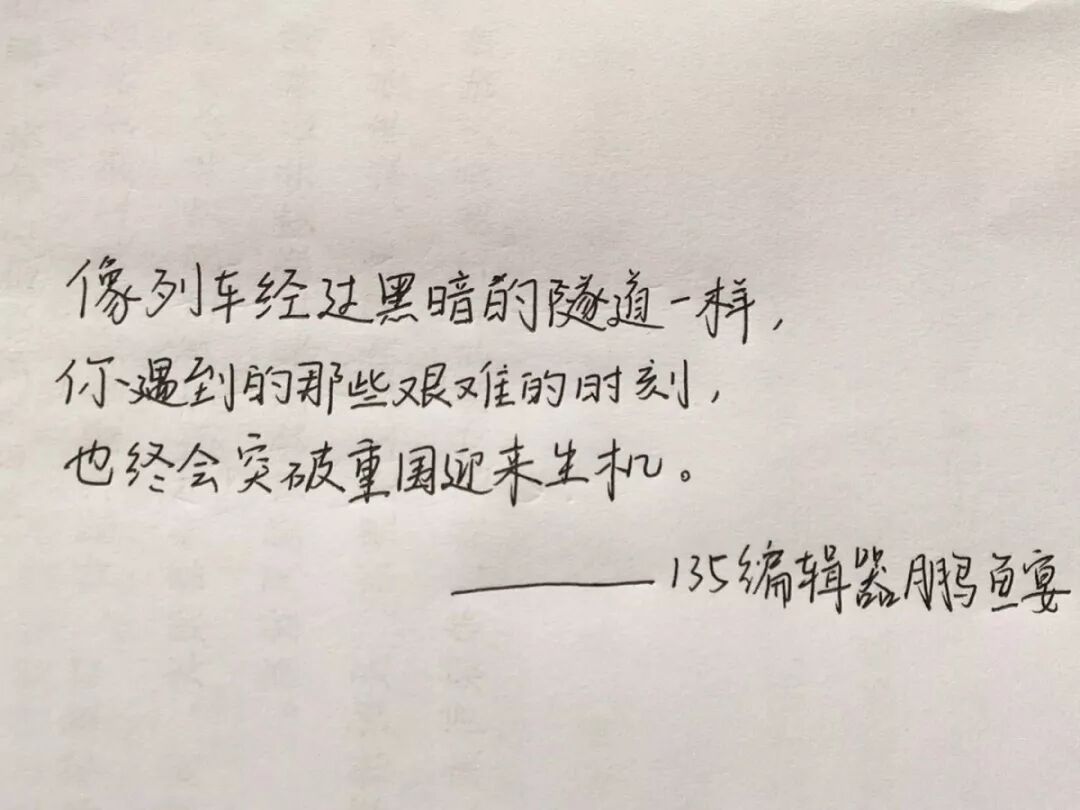 像列车经过黑暗的隧道一样，
你遇到的那些艰难的时刻，
也终会突破重围迎来生机。
——135编辑器鹏鱼宴